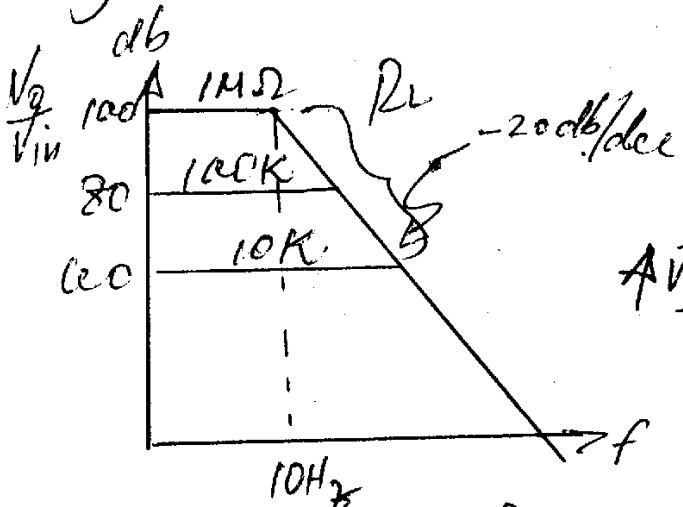 db
Vo
Vin
100 1MΩ RL
-20db/dec
80 100K
60 10K
AV
10Hz
f